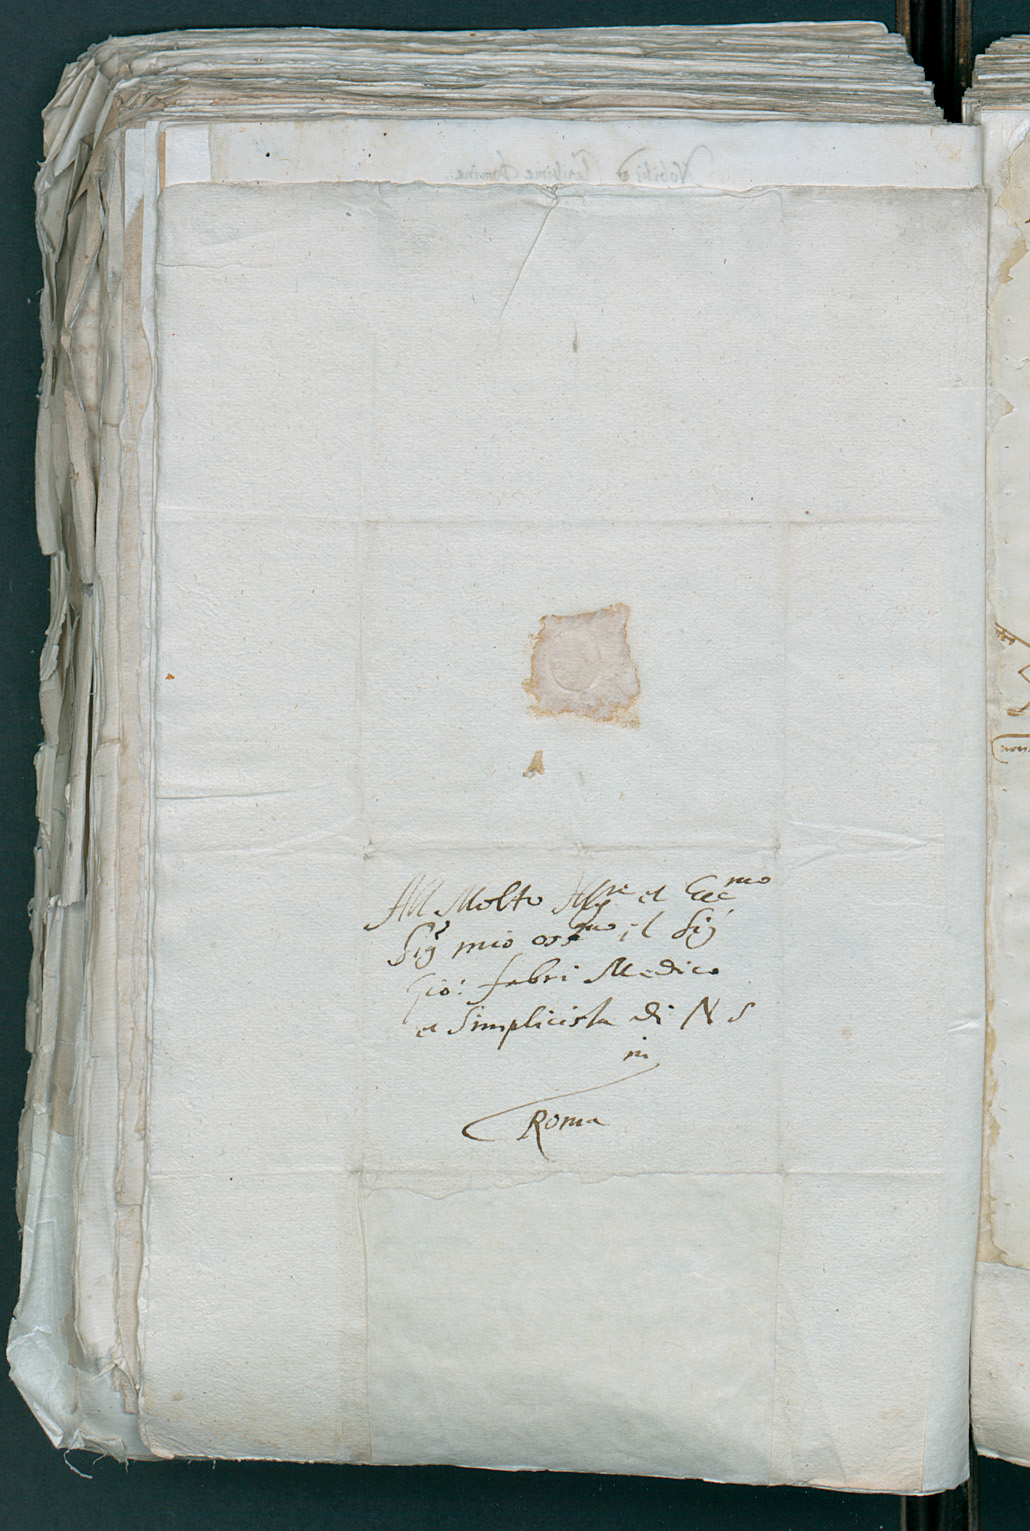 All Molto Ill.re et Ecc.mo
Sig.r mio oss.mo il Sig.
Gio: fabri Medico
et Simplicista di N S
in
Roma